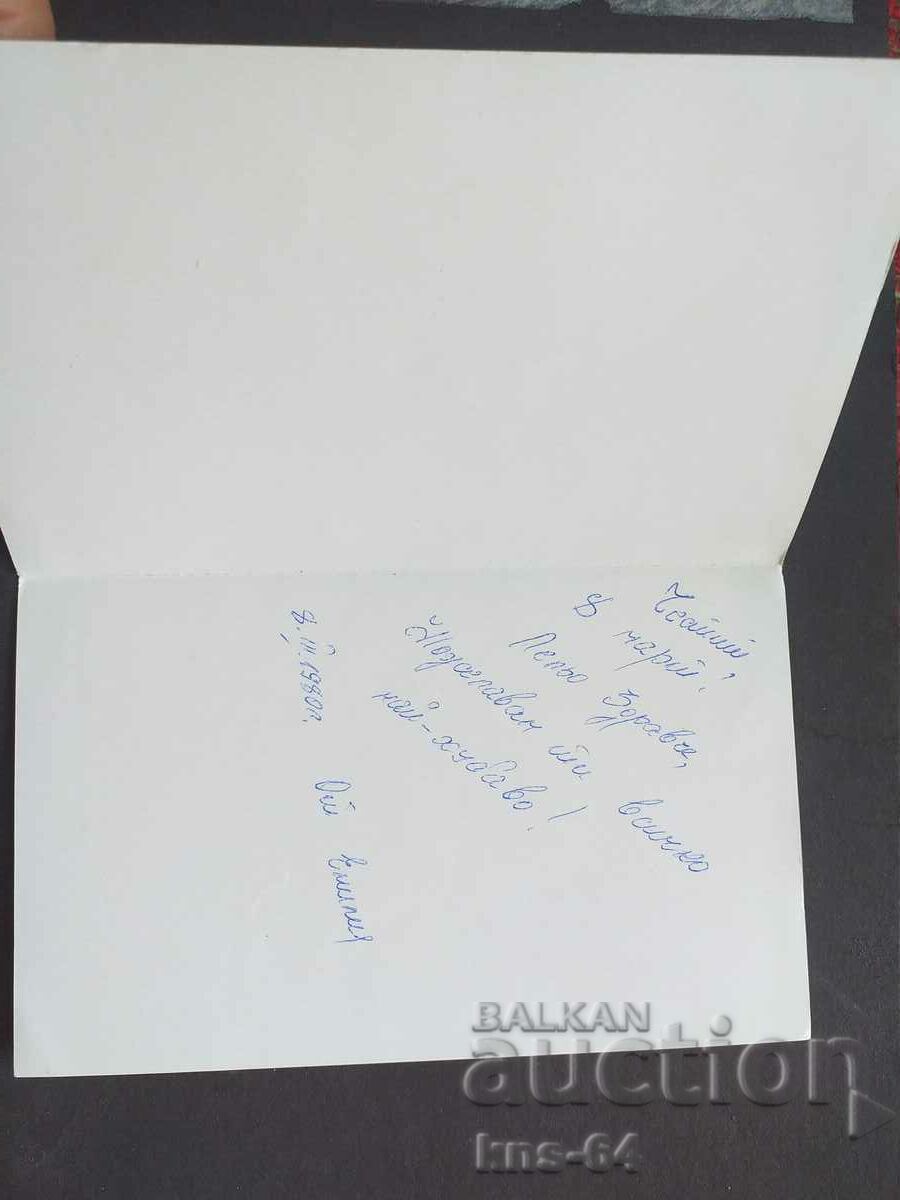 Честит
8 март!
Лельо Здравке,
Пожелавам ти всичко
най-хубаво!
8.III.1980г. От Емилия
BALKAN
auction
kns-64